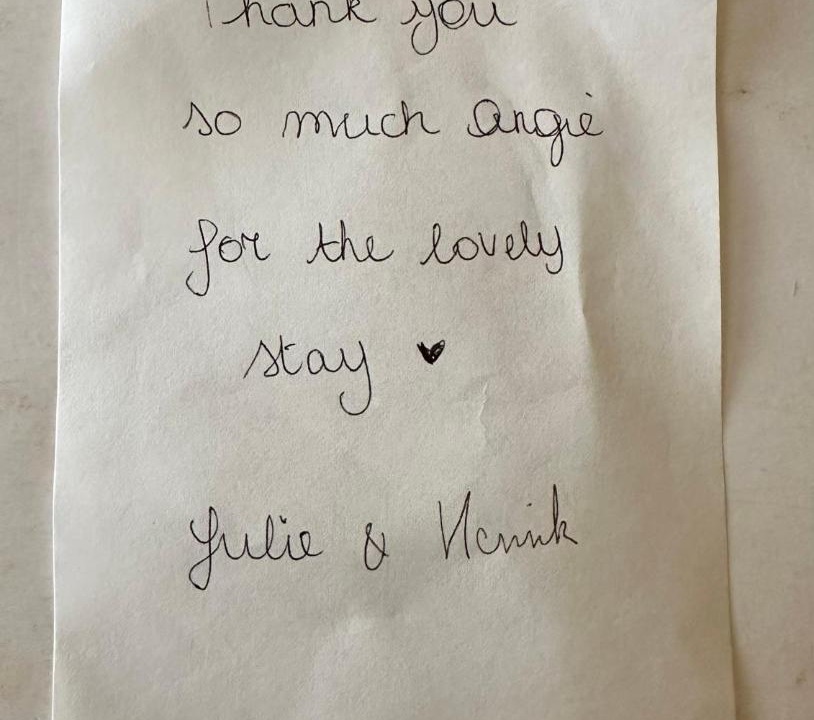 Thank you
so much Angie
for the lovely
stay ♥
Julie & Henrik